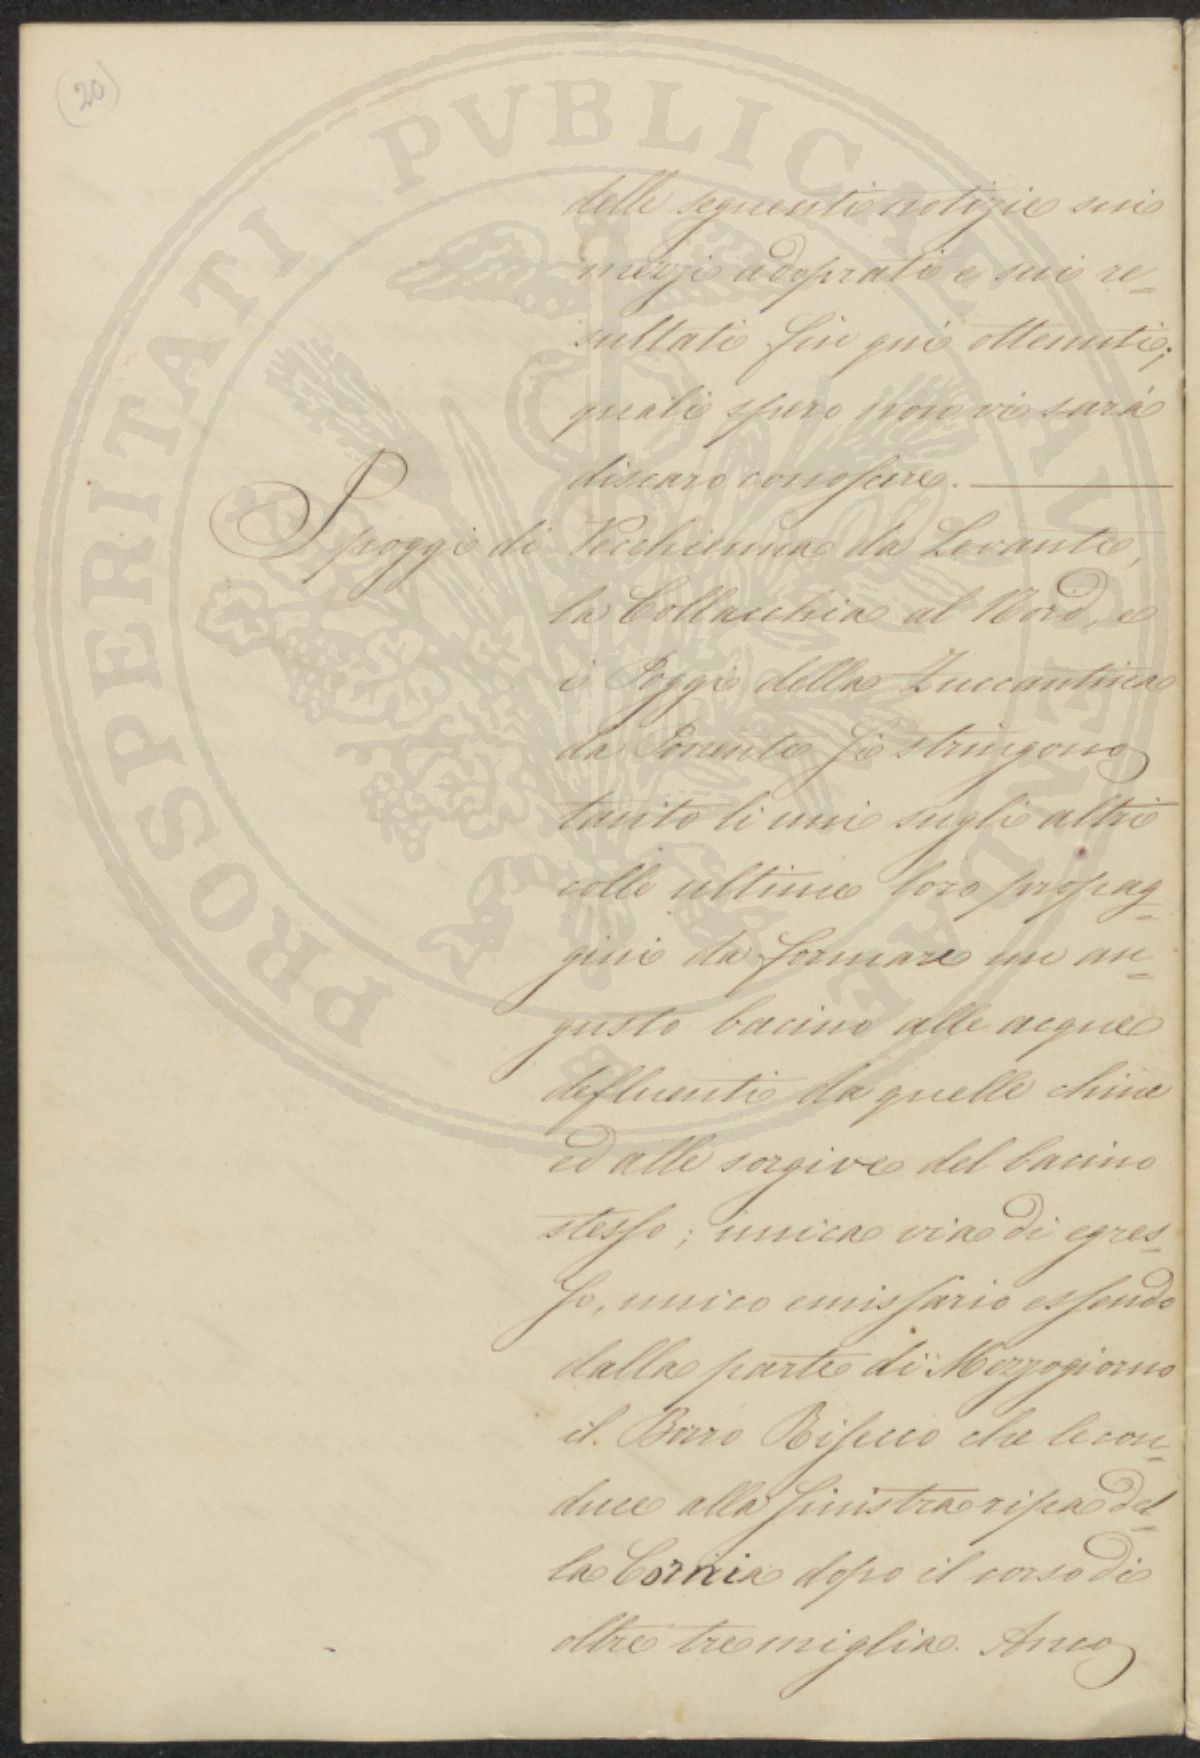 (20)
delle seguenti notizie sui
mezzi adoprati e sui re=
sultati fin quì ottenuti;
quali spero non vi sarà
discaro conoscere.
I poggi di Vecchienna da Levante,
la Collacchia al Nord, e
i Poggi della Zuccantina
da Ponente si stringono
tanto li uni sugli altri
colle ultime loro propag=
gini da formare un an=
gusto bacino alle acque
defluenti da quelle chine
ed alle sorgive del bacino
stesso; unica via di egres=
so, unico emissario essendo
dalla parte di Mezzogiorno
il Borro Risecco che le con=
duce alla sinistra ripa del=
la Cornia dopo il corso di
oltre tre miglia. Anco
PROSPERITATI PVBLICAE AVGENDAE